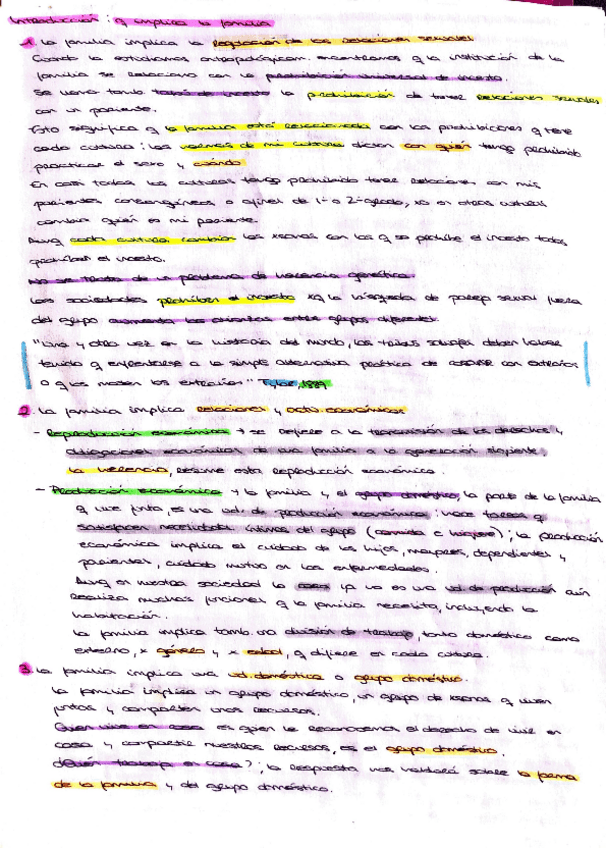 Introducción: q implica la familia
1. La familia implica la regulación de las relaciones sexuales
Cuando la estudiamos antropológicam. encontramos q la institución de la
familia se relaciona con la prohibición universal de incesto.
Se llama tamb tabú de incesto la prohibición de tener relaciones sexuales
con un pariente.
Esto significa q la familia está relacionada con las prohibiciones q tiene
cada cultura: las normas de mi cultura dictan con quién tengo prohibido
practicar el sexo y cuándo.
En casi todas las culturas tengo prohibido tener relaciones con mis
parientes consanguíneos o afines de 1º o 2º grado, xo en otras culturas
cambia quién es mi pariente.
Aunq cada cultura cambia las xsonas con las q se prohíbe el incesto todas
prohíben el incesto.
No se trata de un problema de herencia genética.
Las sociedades prohíben el incesto xq la búsqueda de pareja sexual fuera
del grupo aumenta las alianzas entre grupos diferentes.
"Una y otra vez en la historia del mundo, las tribus salvajes deben haber
tenido q enfrentarse a la simple alternativa práctica de casarse con extraños
o q les maten los extraños" Tylor, 1889
2. La familia implica relaciones y activ. económicas
- Reproducción económica → se refiere a la transmisión de los derechos y
obligaciones económicas de una familia a la generación siguiente;
la herencia, resume esta reproducción económica.
- Producción económica → la familia y el grupo doméstico, la parte de la familia
q vive junta, es una ud. de producción económica; hace tareas q
satisfacen necesidades íntimas del grupo (comida e higiene); la producción
económica implica el cuidado de los hijos, mayores, dependientes y
parientes, cuidado mutuo en las enfermedades.
Aunq en nuestra sociedad la casa ya no es una ud de producción aún
realiza muchas funciones q la familia necesita, incluyendo la
habitación.
La familia implica tamb. una división de trabajo, tanto doméstico como
externo, x género y x edad, q difiere en cada cultura.
3. La familia implica una ud. doméstica o grupo doméstico.
La familia implica un grupo doméstico, un grupo de xsonas q viven
juntas y comparten unos recursos.
Quien vive en casa es quien le reconocemos el derecho de vivir en
casa y compartir nuestros recursos, es el grupo doméstico.
¿Quién trabaja en casa?; la respuesta nos hablará sobre la forma
de la familia y del grupo doméstico.